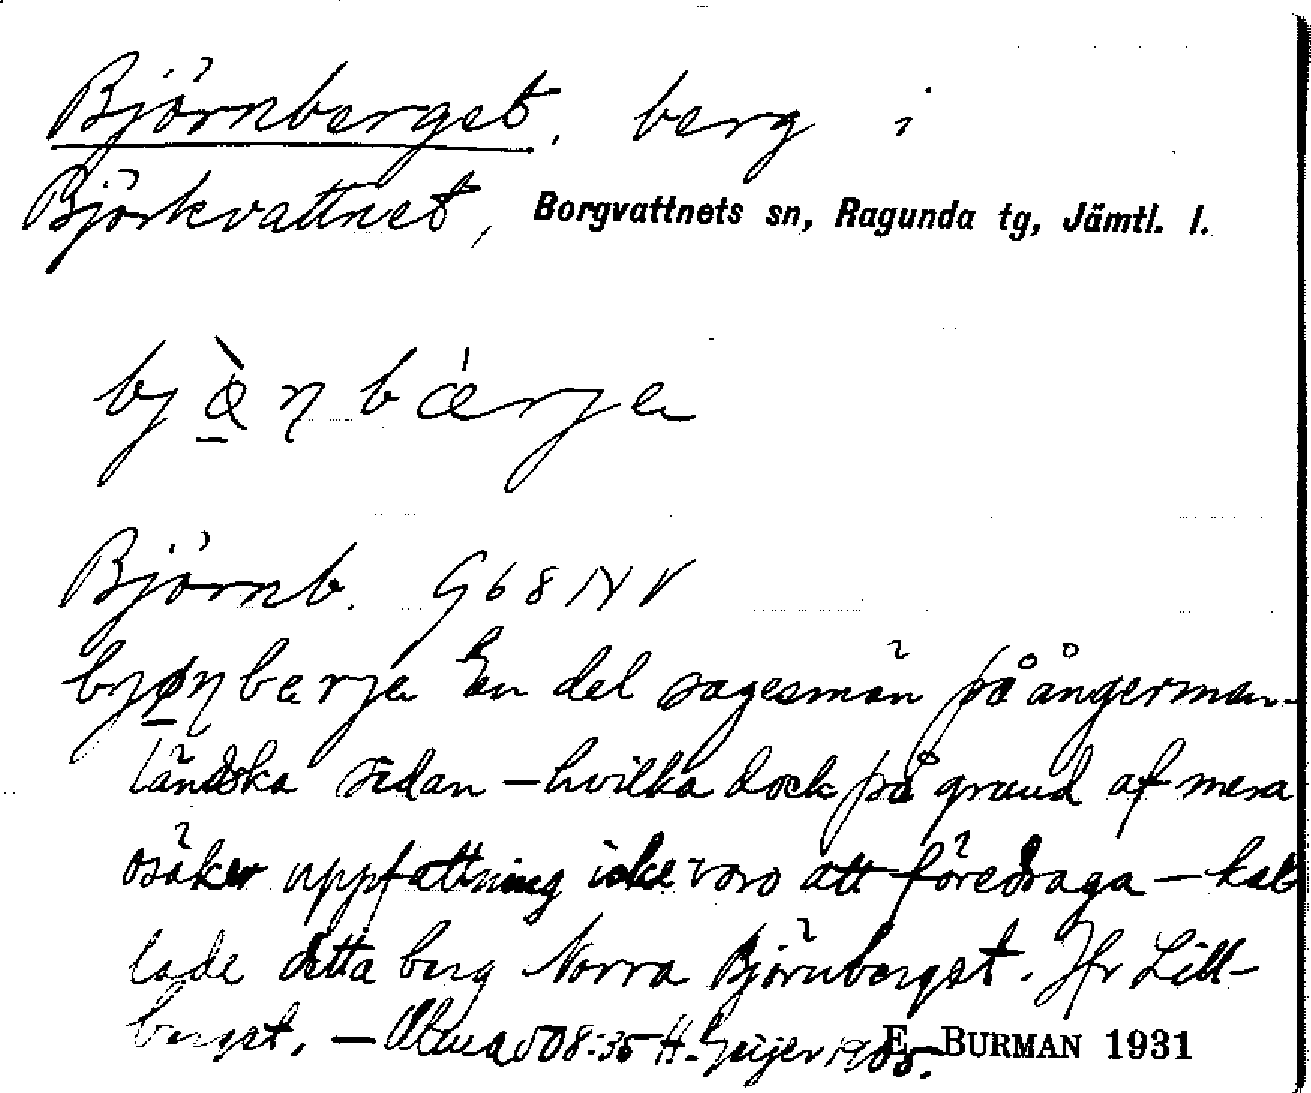 Björnberget, berg i
Björkvattnet, Borgvattnets sn, Ragunda tg, Jämtl. l.
Björnb. G68NV
En del sagesmän på ångerman-
ländska sidan – hvilka dock på grund af mera
osäker uppfattning icke voro att föredraga – kal
lade detta berg Norra Björnberget. Jfr Lill-
berget. – H. Geijer 1905. E. BURMAN 1931